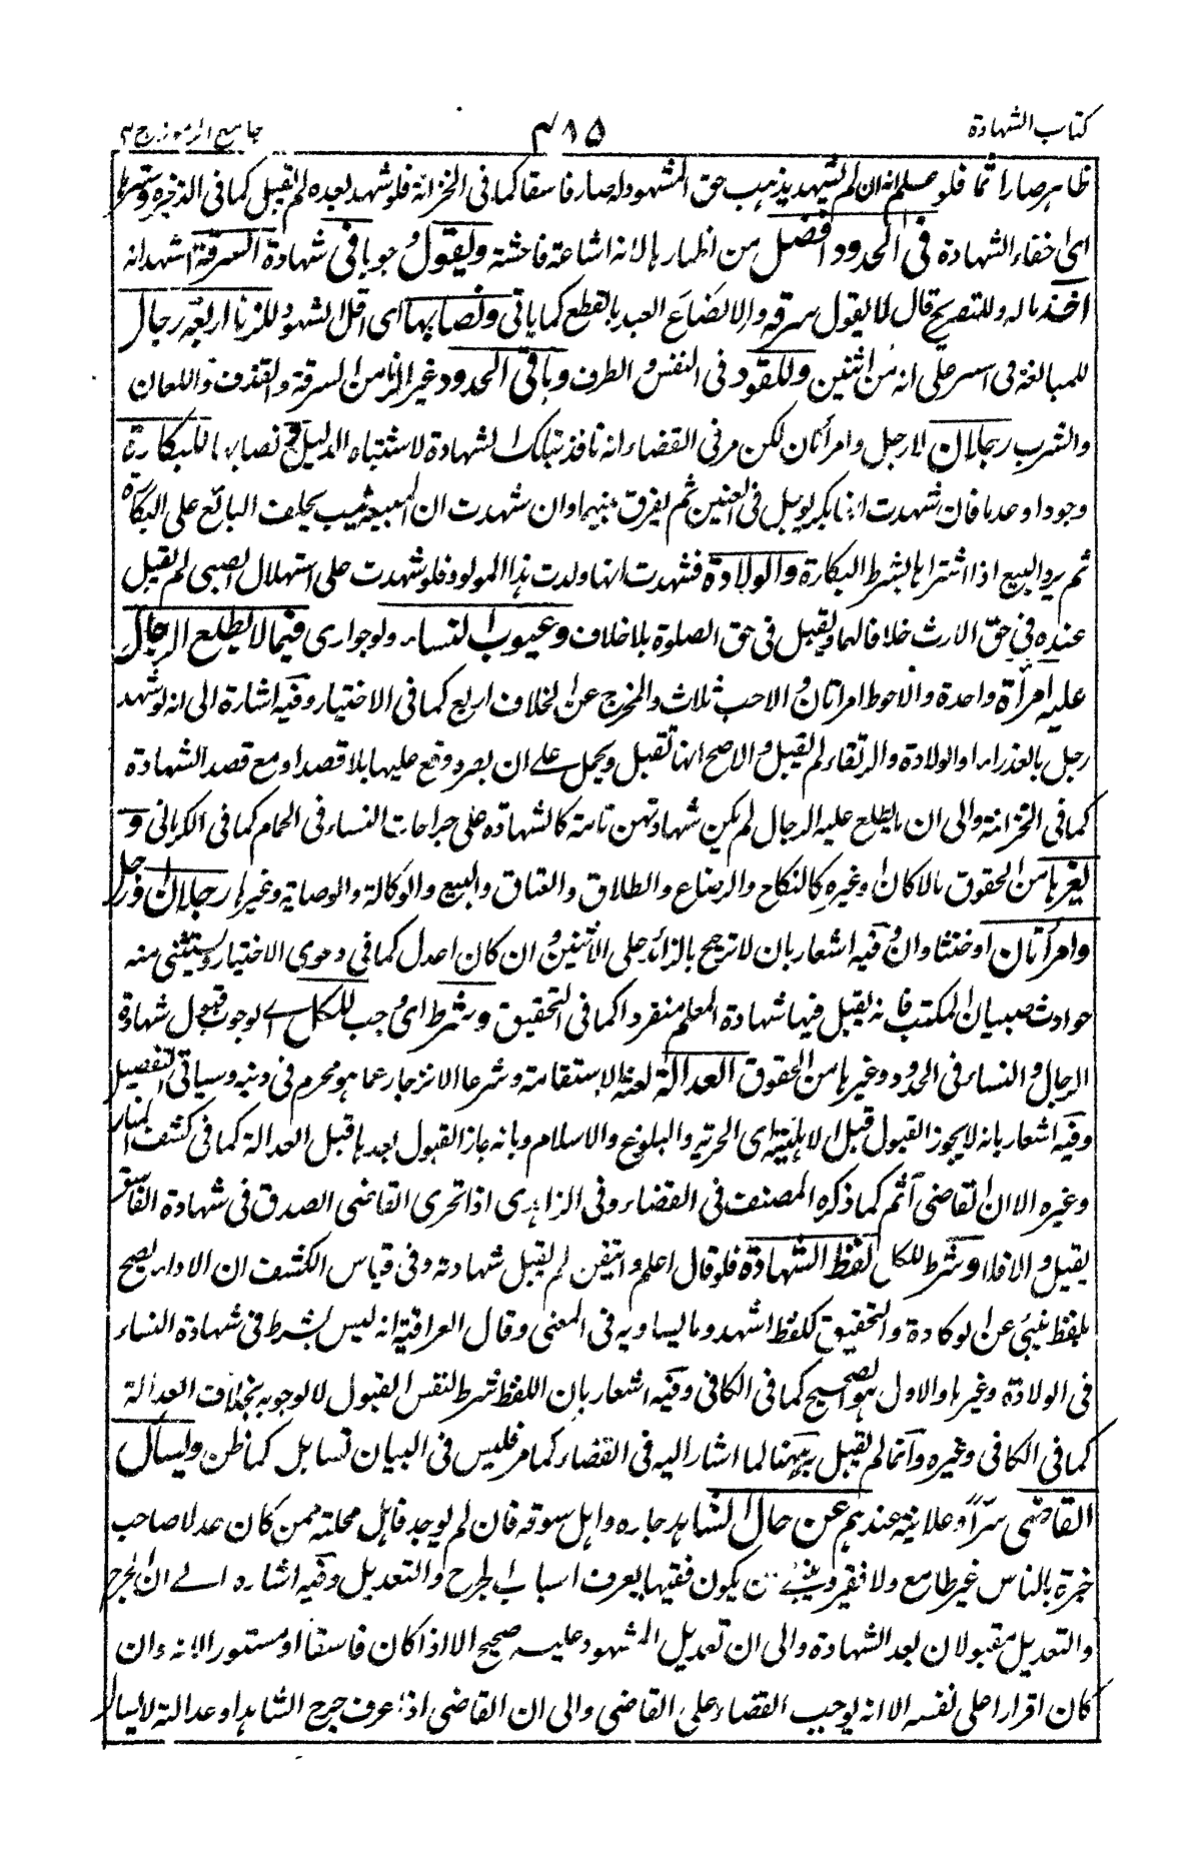 كتاب الشهادة
٣٨٥
جامع الرموز ج ٣
ظاهر صار آثما فلو علم انه ان لم يشهد يذهب حق المشهود له صار فاسقا كما فى الخزانة فلو شهد بعده لم يقبل كما فى الذخيرة وسترها
اى اخفاء الشهادة فى الحدود افضل من اظهارها لانه اشاعة فاحشة ويقول وجوبا فى شهادة السرقة اشهد انه
اخذ ماله وللتصريح قال لا يقول سرقه والا لضاع العبد بالقطع كما ياتى ونصابها اى اقل الشهود للزنا اربعة رجال
للمبالغة فى الستر على انه من اثنين وللقود فى النفس والطرف وباقى الحدود غير الزنا من السرقة والقذف واللعان
والشرب رجلان لا رجل وامرأتان لكن مر فى القضاء انه نافذ بتلك الشهادة لاشتباه الدليل فى نصابها للبكارة
وجودا وعدما فان شهدت انها بكر يوجل فى العنين ثم يفرق بينهما وان شهدت ان المبيعة ثيب يحلف البائع على البكارة
ثم يرد البيع اذا اشتراها بشرط البكارة والولادة فشهدت انها ولدت هذا المولود فلو شهدت على استهلال الصبى لم يقبل
عنده فى حق الارث خلافا لهما ويقبل فى حق الصلوة بلا خلاف وعيوب النساء ولو جوارى فيما لا يطلع الرجال
عليه امرأة واحدة والاحوط امرأتان والاحب ثلاث والمخرج عن الخلاف اربع كما فى الاختيار وفيه اشارة الى انه لو شهد
رجل بالعذراء او الولادة والرتقاء لم يقبل والاصح انها تقبل ويحمل على ان بصره وقع عليها بلا قصد او مع قصد الشهادة
كما فى الخزانة والى ان ما يطلع عليه الرجال لم يكن شهادتهن تامة كالشهادة على جراحات النساء فى الحمام كما فى الكرمانى و
لغيرها من الحقوق مالا كان او غيره كالنكاح والرضاع والطلاق والعتاق والبيع والوكالة والوصاية وغيرها رجلان او رجل
وامرأتان او خنثاوان وفيه اشعار بان لا ترجيح بالزائد على الاثنين وان كان اعدل كما فى دعوى الاختيار ويستثنى منه
حوادث صبيان المكتب فانه يقبل فيها شهادة المعلم منفردا كما فى التحقيق وشرط اى وجب للكل اى لوجوب قبول شهادة
الرجال والنساء فى الحدود وغيرها من الحقوق العدالة لغة الاستقامة وشرعا الانزجار عما هو محرم فى دينه وسياتى التفصيل
وفيه اشعار بانه لا يجوز القبول قبل الاهلية اى الحرية والبلوغ والاسلام وبانه جاز القبول بعدها قبل العدالة كما فى كشف المنار
وغيره الا ان القاضى آثم كما ذكره المصنف فى القضاء وفى الزاهدى اذا تحرى القاضى الصدق فى شهادة الفاسق
يقبل والا فلا وشرط للكل لفظ الشهادة فلو قال اعلم او اتيقن لم يقبل شهادته وفى قياس الكشف ان الاداء يصح
بلفظ ينبئ عن الوكادة والتحقيق كلفظ اشهد وما يساويه فى المعنى وقال العراقية انه ليس بشرط فى شهادة النساء
فى الولادة وغيرها والاول هو الصحيح كما فى الكافى وفيه اشعار بان اللفظ شرط لنفس القبول لا لوجوبه بخلاف العدالة
كما فى الكافى وغيره وانما لم يقبل لما اشار اليه فى القضاء كما مر فليس فى البيان تساهل كما ظن ويسأل
القاضى سرا وعلانية عندهم عن حال الشاهد جاره واهل سوقه فان لم يوجد فاهل محلته ممن كان عدلا صاحب
خبرة بالناس غير طامع ولا فقير وينبغى ان يكون فقيها يعرف اسباب الجرح والتعديل وفيه اشارة الى ان الجرح
والتعديل مقبولان بعد الشهادة والى ان تعديل المشهود عليه صحيح الا اذا كان فاسقا او مستورا لانه وان
كان اقرارا على نفسه الا انه يوجب القضاء على القاضى والى ان القاضى اذا عرف جرح الشاهد او عدالته لا يسأل